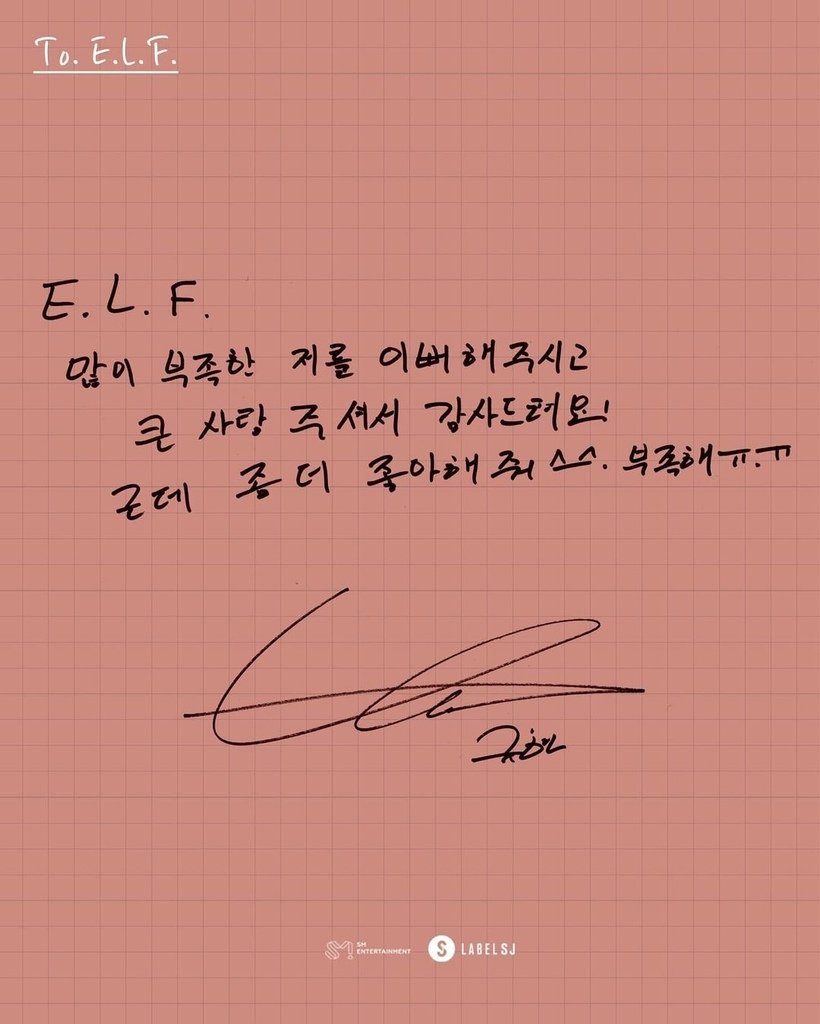 To. E.L.F.
E. L. F.
많이 부족한 저를 이뻐해주시고
큰 사랑 주셔서 감사드려요!
근데 좀 더 좋아해줘 ^^. 부족해ㅠ.ㅠ
규현
SM ENTERTAINMENT
S LABELSJ